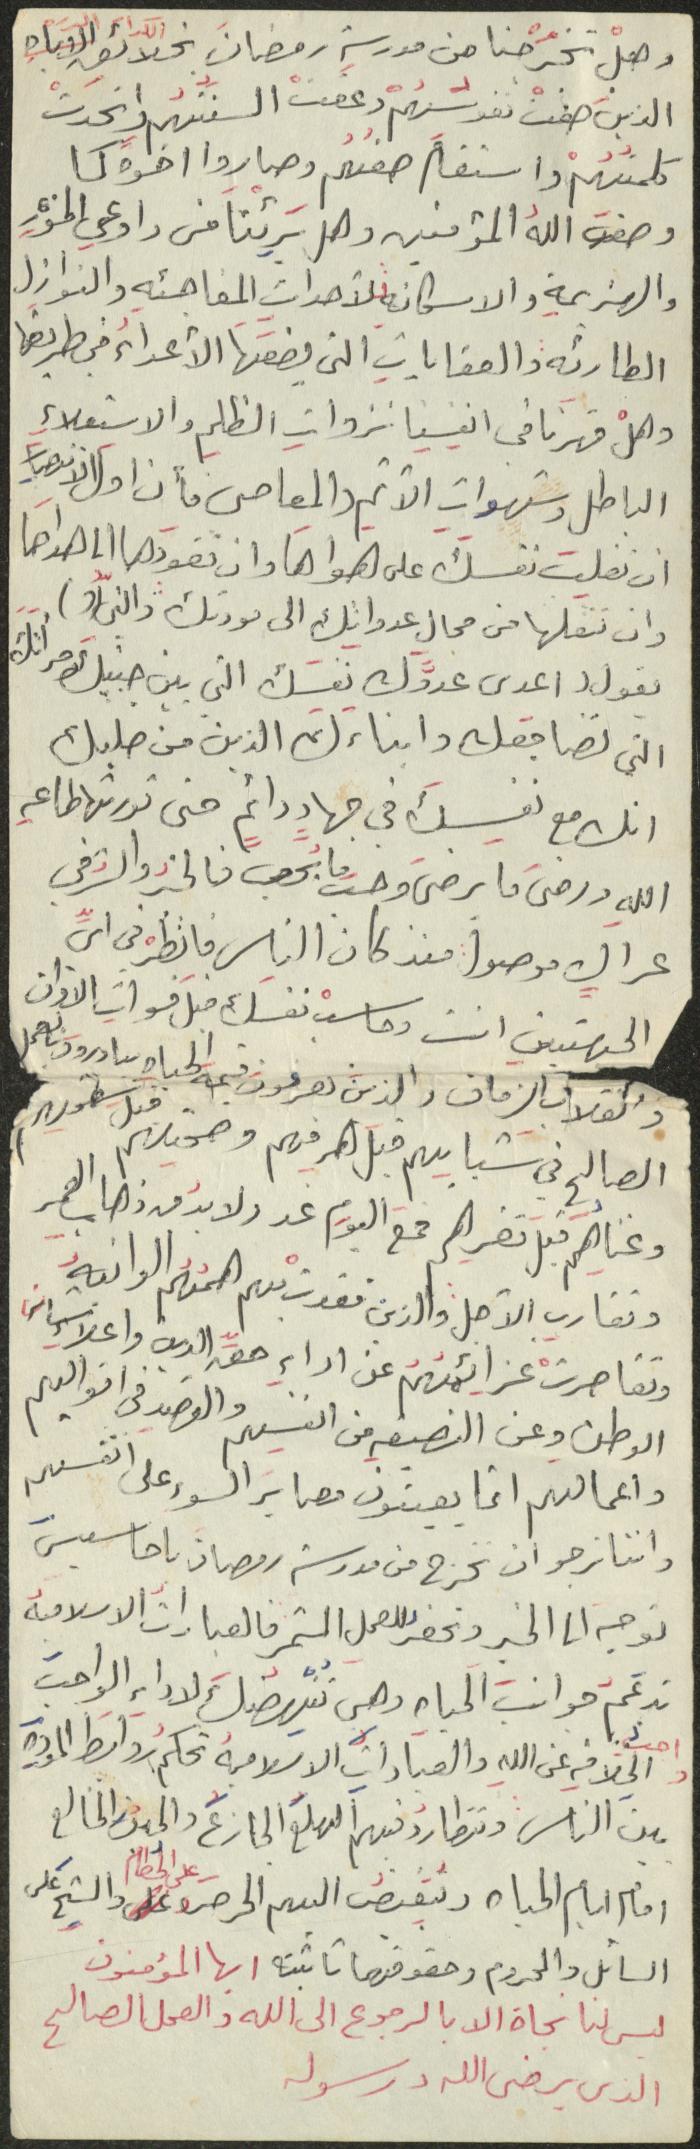 وهلْ تخرّجنا من مدرسةِ رمضانَ بخلائقِ الكرام
الذينَ صفتْ نفوسُهُمْ وعفّتْ السنتُهُم واتحدَتْ
كلمتُهُمْ واستقامَ صفُّهُم وصاروا اخوةً كما
وصفَ اللهُ المؤمنين وهل برِئْنا من دواعي الخَوَرِ
والهزيمةِ والاستكانةِ للأحداثِ المفاجئه والنوازل
الطارئه والعقباتِ التى يضعُها الأعداءُ في طريقنا
وهلْ قهرنا في انفسِنا نزواتِ الظلمِ والاستعلاءِ
الباطل وشهواتِ الأثمِ والمعاصى فأن اولَ الانتصار
ان تغلبَ نفسَكَ على هواها وان تقودها الى هداها
وان تنقلها من مجالِ عدوانِك الى مودتك والنبي
يقول اعدى عدوِّك نفسُك التي بين جنبيك وامرأتُكَ
التي تضاجعك وابناءك الذين من صلبك
انك مع نفسِكَ في جهادٍ دائمٍ حتى تورثها طاعةِ
اللهِ ورضى ما يرضى وحبَّ ما يُحب فالخيرُ والشرُّ في
عراكٍ موصولٍ منذ كان الناس فانظرْ في ايِّ
الجهتين انت وحاسبْ نفسَك قبلَ فواتِ الاوان
وانقلابِ الزمان والذين يعرفون قيمةَ الحياه يبادرون بالعمل
الصالحِ في شبابِهم قبلَ هرمِهم وصحتِهم قبل سقمِهم
وغناهُم قبلَ فقرِهم فمع اليومِ غد ولا بد من ذهابِ العمر
وتقارب الأجل والذين قعدتْ بهم هممُهُم الوانيةُ
وتقاصرتْ عزائمُهُم عن اداءِ حقِّ الدينِ واعلاءِ شأن
الوطن وعن النصيفه من انفسِهم والقصدِ في اقوالهم
واعمالهم انما يجنون مصايرَ السوء على انفسِهم
واننا نرجو ان نخرج من مدرسة رمضان باحاسيسَ
توجه الى الخير وتحفزُ للعمل المثمر فالعبادات الاسلاميةُ
تدعم جوانبَ الحياه وهي تُنْهِضُكَ لاداءِ الواجب
واجب الخلافه عن اللهِ والعباداتُ الاسلاميةُ تحكم روابطَ المودة
بين الناس وتطاردُ فيهم الهلعَ الجازعَ والجبنَ الخالع
امام ايام الحياه وتبغضُ اليهم الحرصَ على الحطامِ والشحَّ على
السائل والمحروم وحقوقهما ثابته ايها المؤمنون
ليس لنا نجاة الا بالرجوع الى الله والعمل الصالح
الذى يرضى الله ورسوله